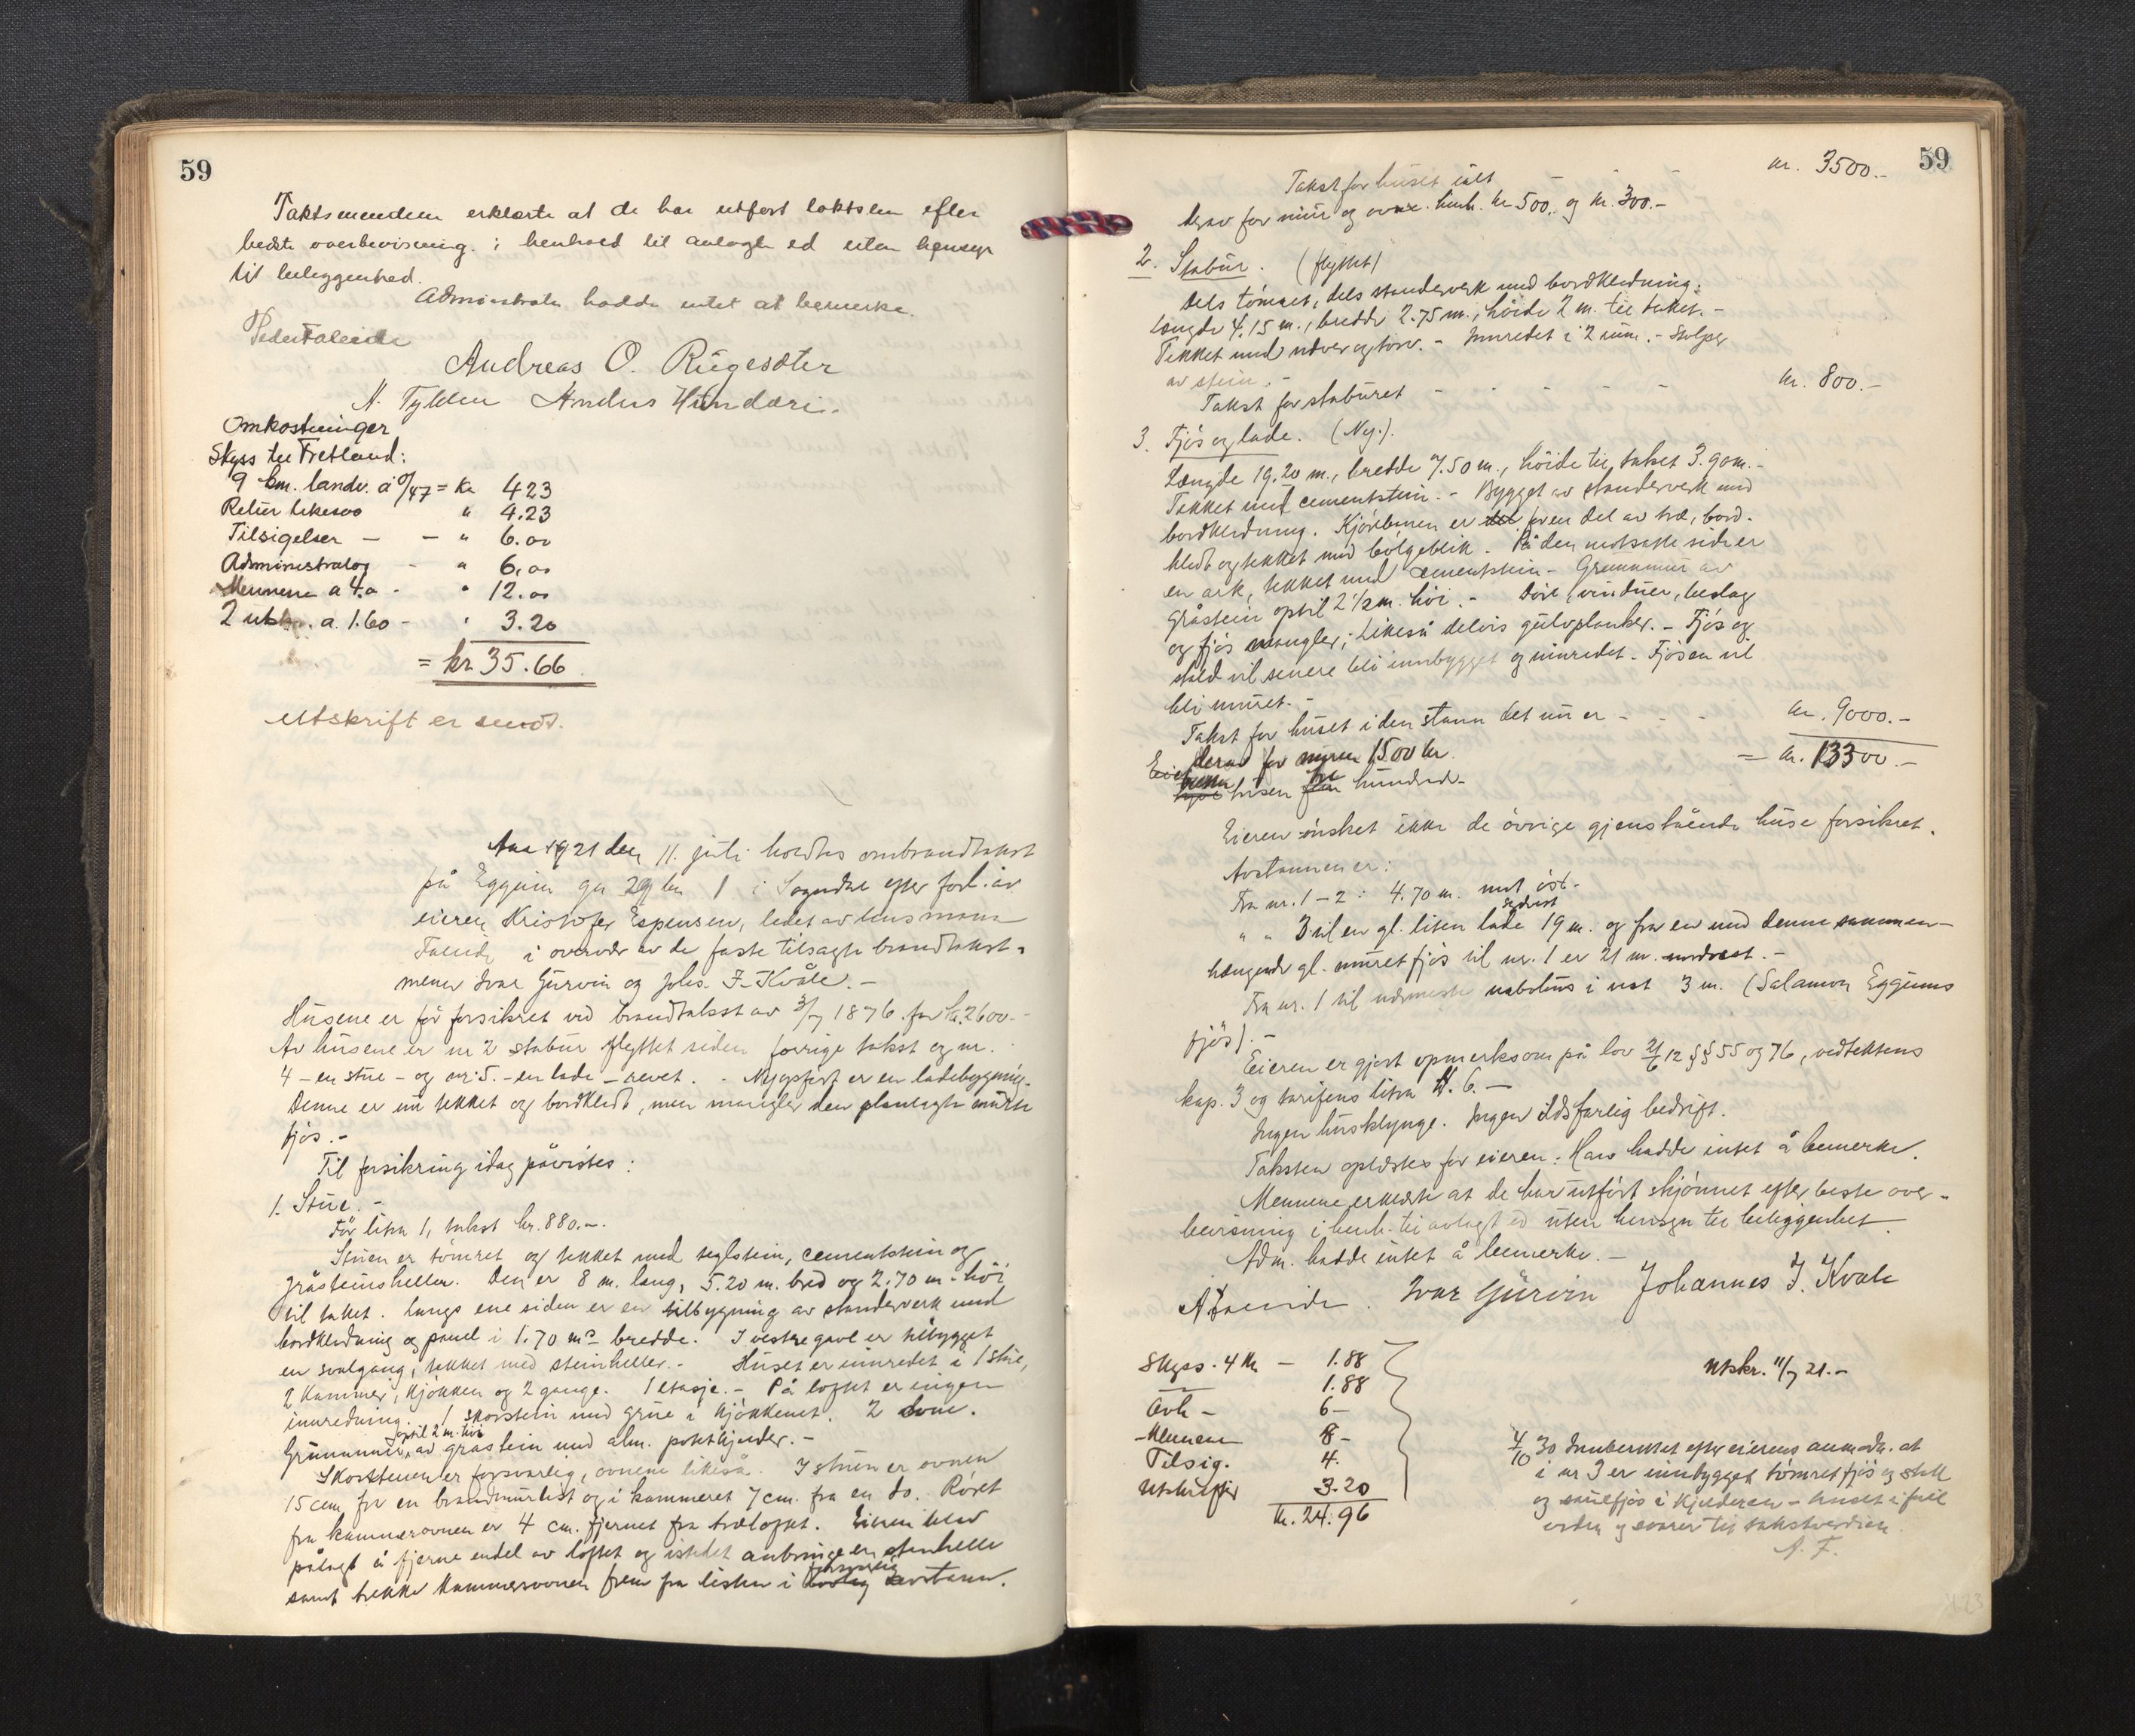 59
Taktsmendene erklærte at de har utført taktsten efter
bedste overbevisning i henhold til avlagte ed uten hensyn
til beliggenhed.
Administrator hadde intet at bemerke.
Peder Faleide
Andreas O. Rugesæter
A. Tylden Anders Hundere.
Omkostninger
Skyss til Fretland:
9 km. landv. à 0/47 = Kr 4.23
Retur likesaa " 4.23
Tilsigelser — — " 6.00
Administrator - " 6.00
Mennene a 4.0 - " 12.00
2 utskr. a. 1.60 - " 3.20
= kr 35.66
Utskrift er sendt.
Aar 1921 den 11. juli holdtes ombrandtakst
på Eggum gn 29 bn 1 i Sogndal efter forl. av
eieren Kristofer Espensen, ledet av lensmann
Faleide i overvær av de faste tilsagte brandtakst-
menn Ivar Gurvin og Johs. J. Kvåle. -
Husene er før forsikret ved brandtakst av 3/7 1876 for kr. 2600.-
Av husene er nr 2 stabur flyttet siden forrige takst og nr.
4 - en stue - og nr. 5. - en lade - revet. - Nyopført er en ladebygning.
Denne er nu tekket og bordkledt, men mangler den planlagte murte
fjøs. -
Til forsikring idag påvistes:
1. Stue. -
Før litra 1, takst kr. 880.-.
Stuen er tømret og tekket med teglstein, cementstein og
gråsteinsheller. Den er 8 m. lang, 5.20 m. bred og 2.70 m. høi
til taket. Langs ene siden er en tilbygning av standerverk med
bordkledning og panel i 1.70 m's bredde. I vestre gavl er tilbygget
en svalgang, tekket med steinheller. - Huset er innredet i 1 stue,
2 kammer, kjøkken og 2 gange. 1 etasje. - På loftet er ingen
innredning. 1 skorstein med grue i kjøkkenet. 2 ovne.
optil 2 m. høi
Grunnmur, av gråstein med alm. potetkjelder. -
Skorsteinen er forsvarlig, ovnene likeså. I stuen er ovnen
15 cm fra en brandmurlist og i kammeret 7 cm. fra en do. Røret
fra kammerovnen er 4 cm. fjernet fra træloftet. Eieren blev
pålagt å fjerne endel av loftet og istedet anbringe en stenhelle
forsvarlig
samt trekke kammersovnen frem fra listen i lovlig avstann.
59
Takst for huset ialt - - kr. 3500.-
herav for mur og ovne henh. kr 500.- og kr. 300.-
2. Stabur. (flyttet)
Dels tømret, dels standerverk med bordkledning.
Længde 4.15 m., bredde 2.75 m., høide 2 m. til taket. -
Tekket med næver og torv. - Innredet i 2 rum. - Stolper
av stein. -
Takst for staburet - - - - - kr. 800.-
3. Fjøs og lade. (Ny.).
Længde 19.20 m., bredde 7.50 m., høide til taket 3.90 m. -
Tekket med cementstein. - Bygget av standerverk med
bordkledning. Kjørebroen er det for en del av træ, bord-
kledt og tekket med bølgeblik. - På den motsatte side er
en ark, tekket med cementstein - Grunnmur av
gråstein optil 2 1/2 m. høi. - Døre, vinduer, beslag
og fjøs mangler; likeså delvis gulvplanker. - Fjøs og
stald vil senere bli innbygget og innredet. - Fjøsen vil
bli muret. -
Takst for huset i den stann det nu er - - - kr. 9000.-
derav for muren 1500 kr. = kr. 13300.-
tretten tre
tusen hundrede.
Eieren ønsket ikke de øvrige gjenstående huse forsikret.
Avstannen er:
Fra nr. 1 - 2 : 4.70 m. mot øst.
sydvest
" " 3 til en gl. liten lade 19 m. og fra en med denne sammen-
hængende gl. muret fjøs til nr. 1 er 21 m. nordvest. -
Fra nr. 1 til nærmeste nabohus i vest 3 m. (Salamon Eggums
fjøs). -
Eieren er gjort opmerksom på lov 21/6 12 §§ 55 og 76, vedtektens
kap. 3 og tarifens litra H. 6. -
Ingen husklynge. Ingen ildsfarlig bedrift.
Taksten oplæstes for eieren: Han hadde intet å bemerke.
Mennene erklærte at de har utført skjønnet efter beste over-
bevisning i henh. til avlagt ed uten hensyn til beliggenhet.
Adm. hadde intet å bemerke. -
A Faleide. Ivar Gurvin Johannes J. Kvale
Skyss. 4 km - 1.88
1.88
Avh - 6 -
Mennene 8 -
Tilsig. 4.
Utskrifter 3.20
Kr. 24.96
Utskr. 11/7 21.-
4/10 30 Innberettet efter eierens anmodn. at
i nr 3 er innbygget tømret fjøs og stall
og sauefjøs i kjelderen - huset i full
orden og svarer til takstverdien.
A. F.